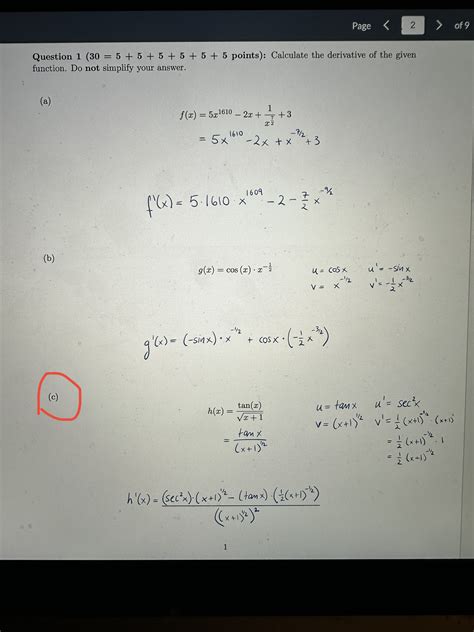 Page < 2 > of 9
Question 1 (30 = 5 + 5 + 5 + 5 + 5 + 5 points): Calculate the derivative of the given
function. Do not simplify your answer.
(a)
f(x) = 5x^1610 − 2x + 1/x^(7/2) + 3
= 5x^1610 − 2x + x^(−7/2) + 3
f'(x) = 5·1610 x^1609 − 2 − 7/2 x^(−9/2)
(b)
g(x) = cos (x) · x^(−1/2) u = cos x u' = −sin x
v = x^(−1/2) v' = −1/2 x^(−3/2)
g'(x) = (−sin x) · x^(−1/2) + cos x · (−1/2 x^(−3/2))
(c)
h(x) = tan(x)/√(x + 1) u = tan x u' = sec²x
v = (x+1)^(1/2) v' = 1/2 (x+1)^(−1/2) · (x+1)'
= tan x/(x+1)^(1/2) = 1/2 (x+1)^(−1/2) · 1
= 1/2 (x+1)^(−1/2)
h'(x) = (sec²x)·(x+1)^(1/2) − (tan x)·(1/2(x+1)^(−1/2))
((x+1)^(1/2))²
1